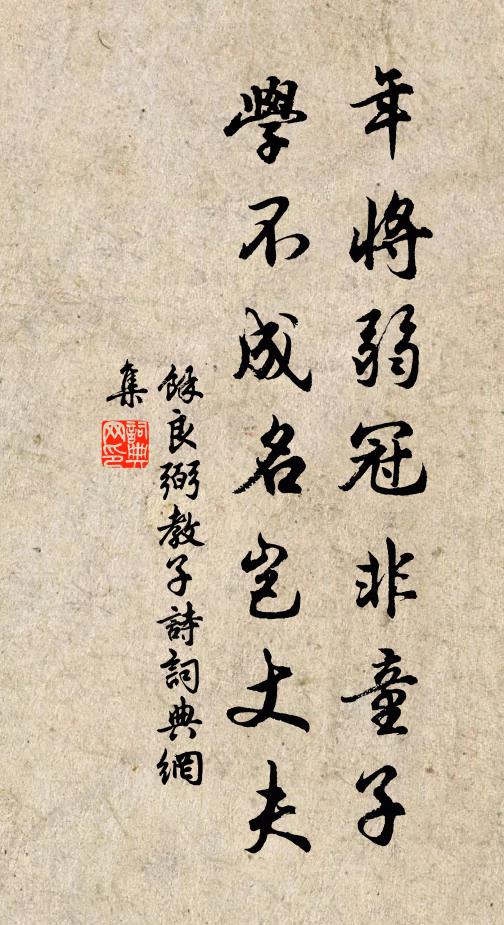 年將弱冠非童子
學不成名岂丈夫
餘良弼教子詩詞典網
集
詞典
网印